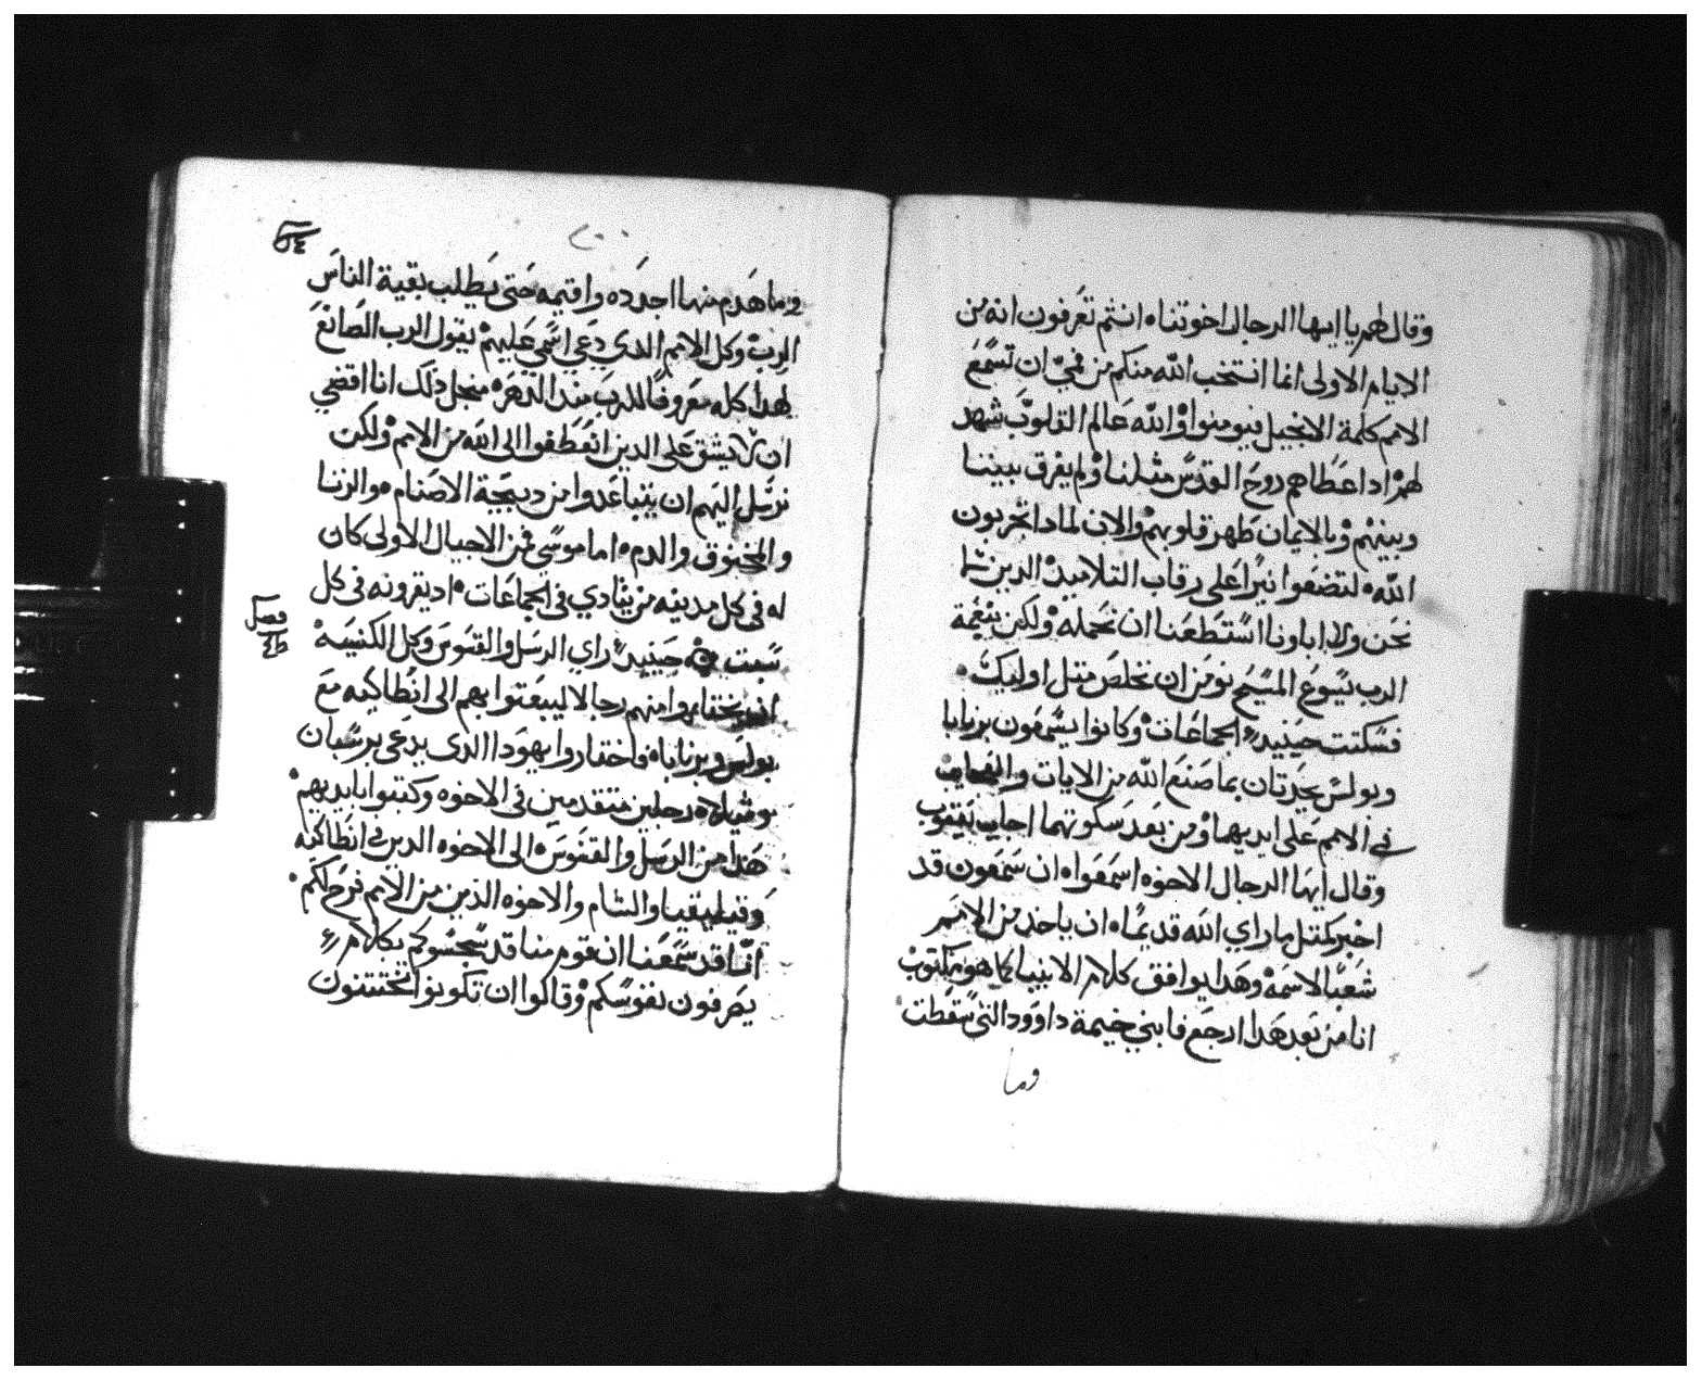 وقال لهم يا ايها الرجال اخوتنا انتم تعرفون انه من
الايام الاولى انما انتخب الله منكم من فمي ان تسمع
الامم كلمة الانجيل فيومنوا والله عالم القلوب شهد
لهم اد اعطاهم روح القدس مثلنا ولم يفرق بيننا
وبينهم وبالايمان طهر قلوبهم والان لمادا تجربون
الله لتضعوا نيرا على رقاب التلاميد الدين لا
نحن ولا اباونا استطعنا ان نحمله ولكن بنعمة
الرب يسوع المسيح نومن ان نخلص متل اوليك
فسكتت حينيد الجماعات وكانوا يسمعون برنابا
وبولس يحدتان بما صنع الله من الايات والعجايب
في الامم على ايديهما ومن بعد سكوتهما اجاب يعقوب
وقال ايها الرجال الاخوه اسمعوا ان سمعون قد
اخبر كمتل ما راي الله قديما ان ياخد من الامم
شعبا لاسمه وهدا يوافق كلام الانبيا كما هو مكتوب
انا من بعد هدا ارجع فابني خيمة داوود التي سقطت
وما
وما هدم منها اجدده واقيمه حتى يطلب بقية الناس
الرب وكل الامم الدي دعي اسمي عليهم يقول الرب الصانع
لهدا كله معروفا للرب مند الدهر منجل دلك انا اقضي
ان لا يشق على الدين انعطفوا الى الله من الامم ولكن
نرسل اليهم ان يتباعدوا من دبيحة الاصنام والزنا
والمخنوق والدم اما موسى فمن الاجيال الاولى كان
له في كل مدينه من ينادي في الجماعات اد يقرونه في كل
فصل
سبت حينيد راي الرسل والقسوس وكل الكنيسه
ان يختاروا منهم رجالا ليبعتوا بهم الى انطاكيه مع
بولس وبرنابا فاختاروا يهودا الدى يدعى برسبان
وشيلا رجلين متقدمين في الاخوه وكتبوا بايديهم
هدا من الرسل والقسوس الى الاخوه الدين في انطاكيه
وقيليقيا والشام والاخوه الذين من الامم فرح لكم
انا قد سمعنا ان قوم منا قد سجسوكم بكلام
يصرفون نفوسكم وقالوا ان تكونوا تختتنون